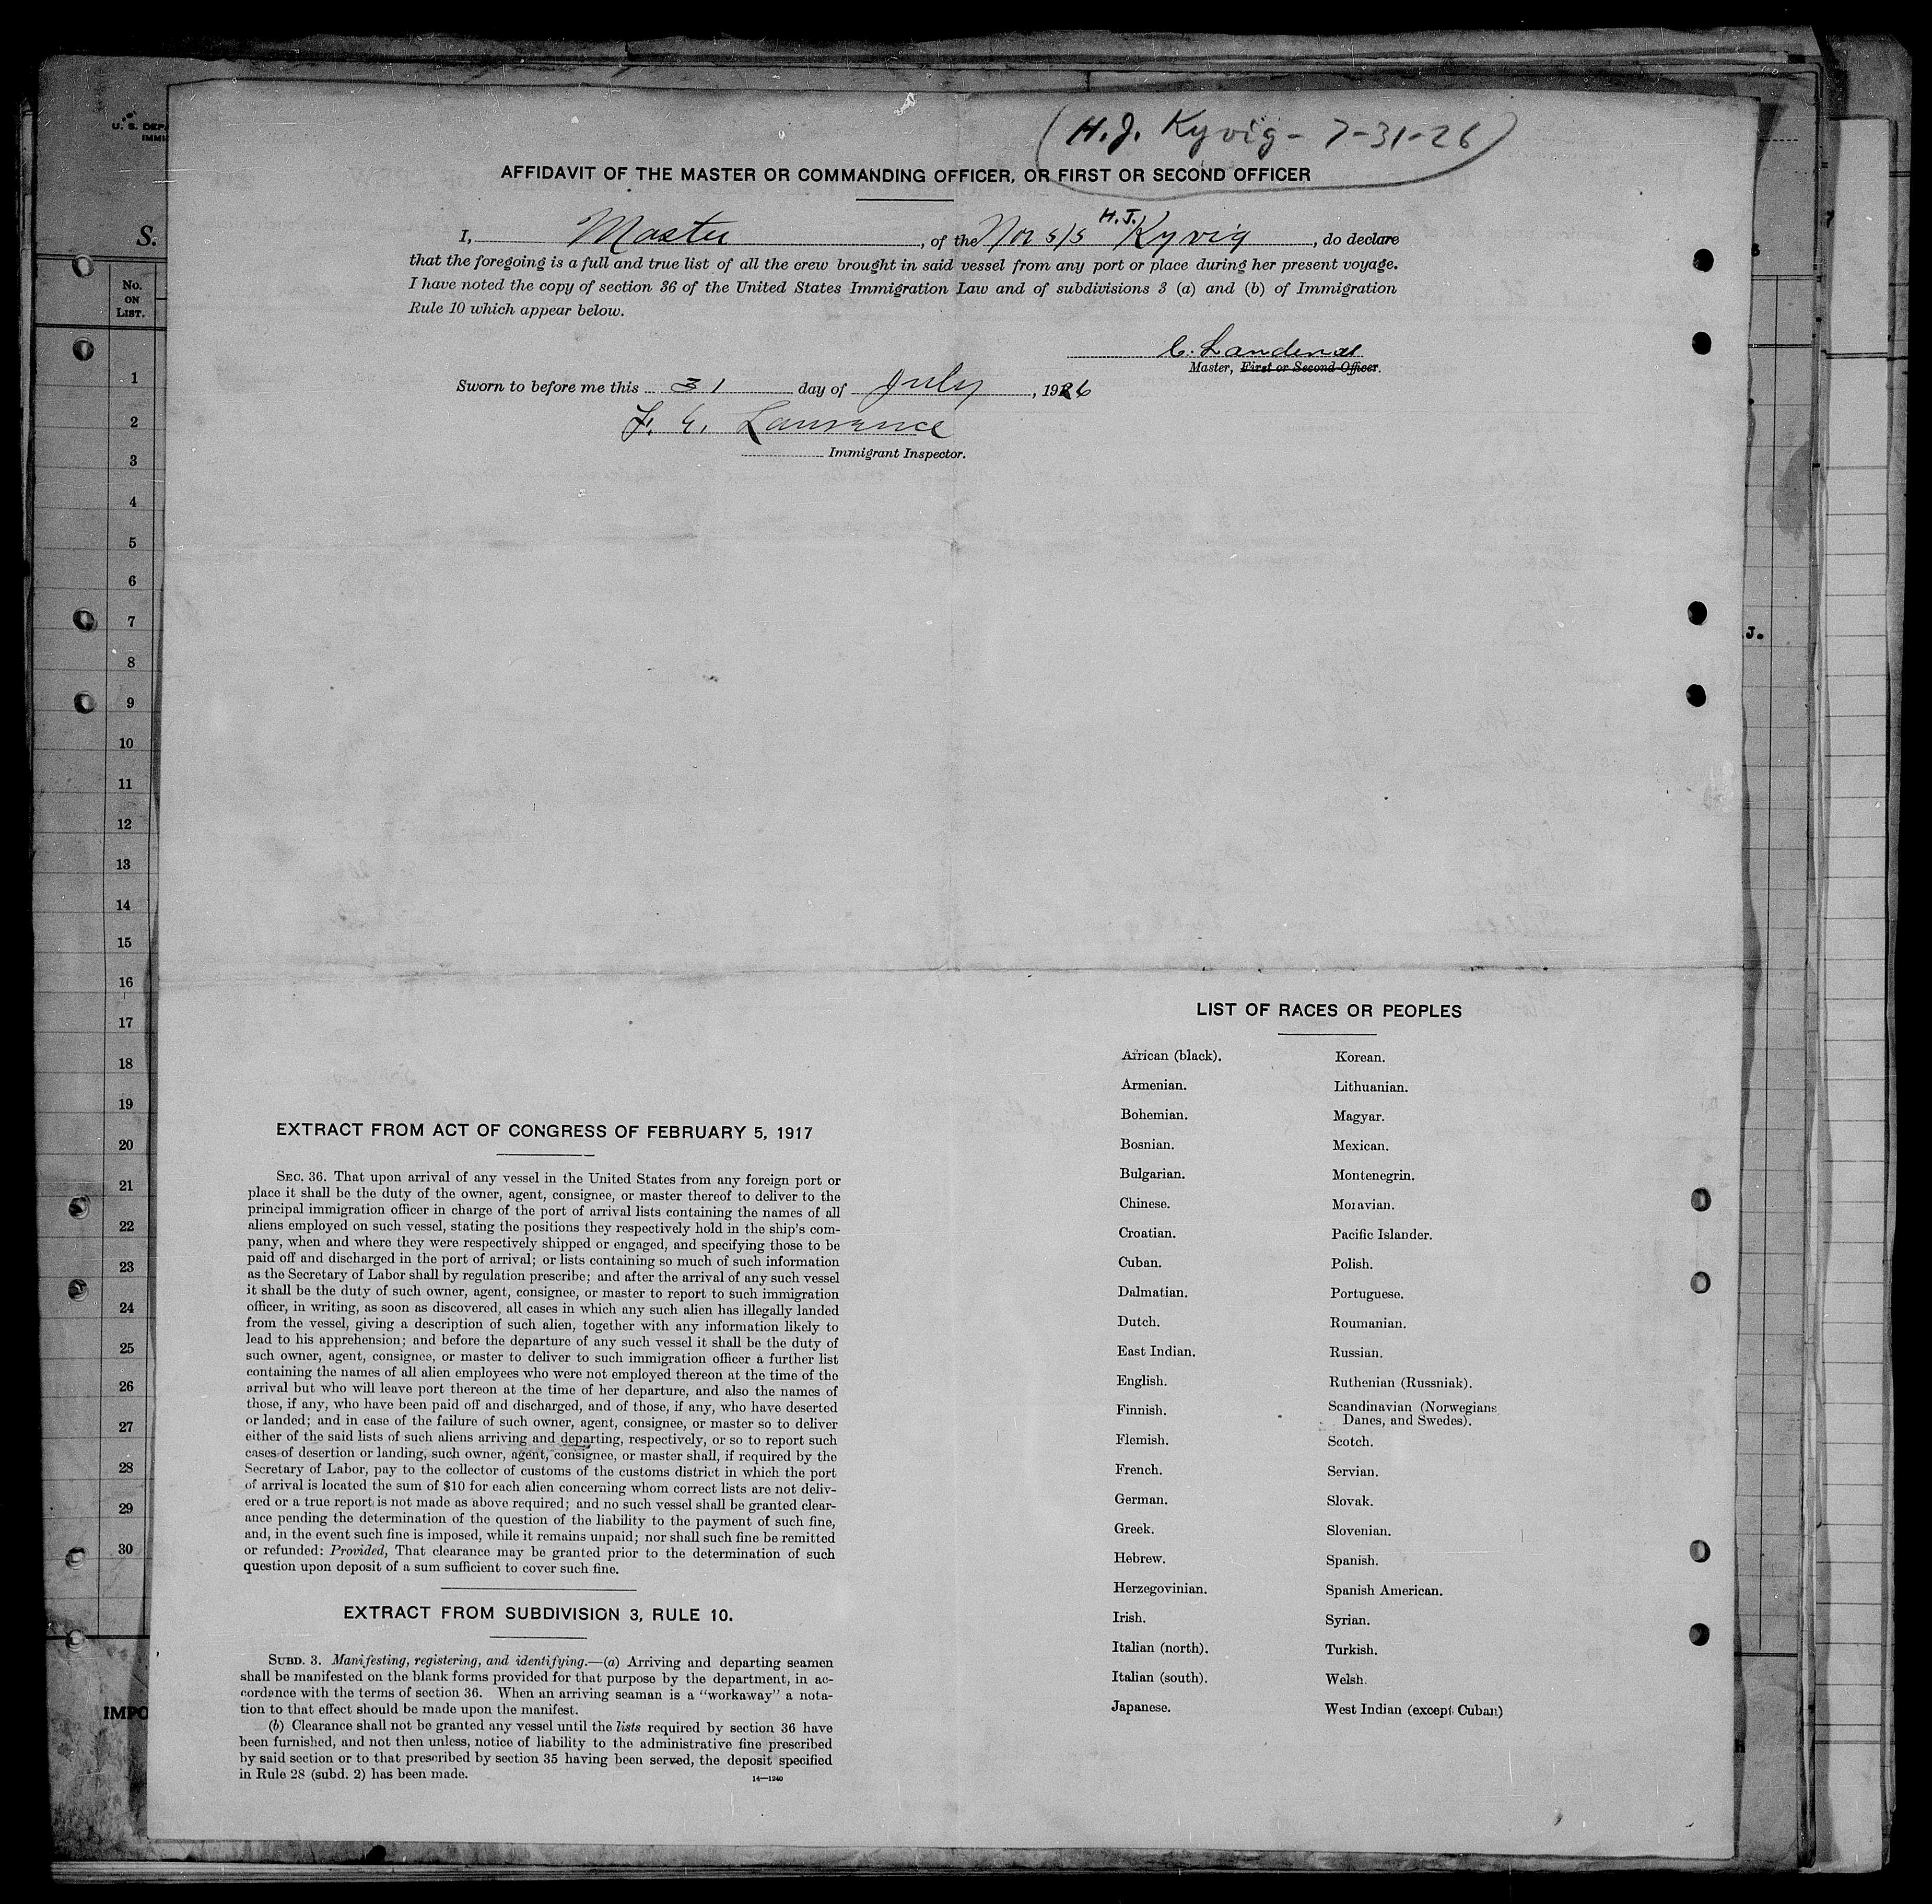 (H.J. Kyvig - 7-31-26)
U. S. DEPA
IMMI
AFFIDAVIT OF THE MASTER OR COMMANDING OFFICER, OR FIRST OR SECOND OFFICER
S.
H.J.
I, Master, of the Nor S/S Kyvig, do declare
that the foregoing is a full and true list of all the crew brought in said vessel from any port or place during her present voyage.
I have noted the copy of section 36 of the United States Immigration Law and of subdivisions 3 (a) and (b) of Immigration
Rule 10 which appear below.
Master, First or Second Officer.
Sworn to before me this 31 day of July, 1926
F. E. Lawrence
Immigrant Inspector.
No.
ON
LIST.
1
2
3
4
5
6
7
8
9
10
11
12
13
14
15
16
17
18
19
20
21
22
23
24
25
26
27
28
29
30
IMPO
J.
EXTRACT FROM ACT OF CONGRESS OF FEBRUARY 5, 1917
SEC. 36. That upon arrival of any vessel in the United States from any foreign port or
place it shall be the duty of the owner, agent, consignee, or master thereof to deliver to the
principal immigration officer in charge of the port of arrival lists containing the names of all
aliens employed on such vessel, stating the positions they respectively hold in the ship's com-
pany, when and where they were respectively shipped or engaged, and specifying those to be
paid off and discharged in the port of arrival; or lists containing so much of such information
as the Secretary of Labor shall by regulation prescribe; and after the arrival of any such vessel
it shall be the duty of such owner, agent, consignee, or master to report to such immigration
officer, in writing, as soon as discovered, all cases in which any such alien has illegally landed
from the vessel, giving a description of such alien, together with any information likely to
lead to his apprehension; and before the departure of any such vessel it shall be the duty of
such owner, agent, consignee, or master to deliver to such immigration officer a further list
containing the names of all alien employees who were not employed thereon at the time of the
arrival but who will leave port thereon at the time of her departure, and also the names of
those, if any, who have been paid off and discharged, and of those, if any, who have deserted
or landed; and in case of the failure of such owner, agent, consignee, or master so to deliver
either of the said lists of such aliens arriving and departing, respectively, or so to report such
cases of desertion or landing, such owner, agent, consignee, or master shall, if required by the
Secretary of Labor, pay to the collector of customs of the customs district in which the port
of arrival is located the sum of $10 for each alien concerning whom correct lists are not deliv-
ered or a true report is not made as above required; and no such vessel shall be granted clear-
ance pending the determination of the question of the liability to the payment of such fine,
and, in the event such fine is imposed, while it remains unpaid; nor shall such fine be remitted
or refunded: Provided, That clearance may be granted prior to the determination of such
question upon deposit of a sum sufficient to cover such fine.
EXTRACT FROM SUBDIVISION 3, RULE 10.
SUBD. 3. Manifesting, registering, and identifying.—(a) Arriving and departing seamen
shall be manifested on the blank forms provided for that purpose by the department, in ac-
cordance with the terms of section 36. When an arriving seaman is a "workaway" a nota-
tion to that effect should be made upon the manifest.
(b) Clearance shall not be granted any vessel until the lists required by section 36 have
been furnished, and not then unless, notice of liability to the administrative fine prescribed
by said section or to that prescribed by section 35 having been served, the deposit specified
in Rule 28 (subd. 2) has been made.
14—1240
LIST OF RACES OR PEOPLES
African (black).
Armenian.
Bohemian.
Bosnian.
Bulgarian.
Chinese.
Croatian.
Cuban.
Dalmatian.
Dutch.
East Indian.
English.
Finnish.
Flemish.
French.
German.
Greek.
Hebrew.
Herzegovinian.
Irish.
Italian (north).
Italian (south).
Japanese.
Korean.
Lithuanian.
Magyar.
Mexican.
Montenegrin.
Moravian.
Pacific Islander.
Polish.
Portuguese.
Roumanian.
Russian.
Ruthenian (Russniak).
Scandinavian (Norwegians,
Danes, and Swedes).
Scotch.
Servian.
Slovak.
Slovenian.
Spanish.
Spanish American.
Syrian.
Turkish.
Welsh.
West Indian (except Cuban)